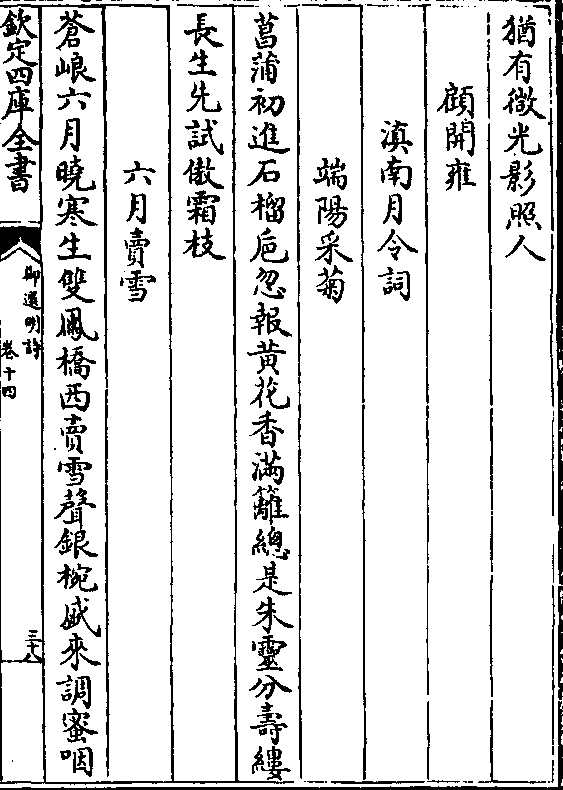 猶有微光影照人
顧開雍
滇南月令詞
端陽采菊
菖蒲初進石榴巵忽報黄花香滿籬總是朱靈分壽縷
長生先試傲霜枝
六月賣雪
蒼崐六月曉寒生雙鳳橋西賣雪聲銀椀盛來調蜜咽
欽定四庫全書
御選明詩
卷十四
三十八